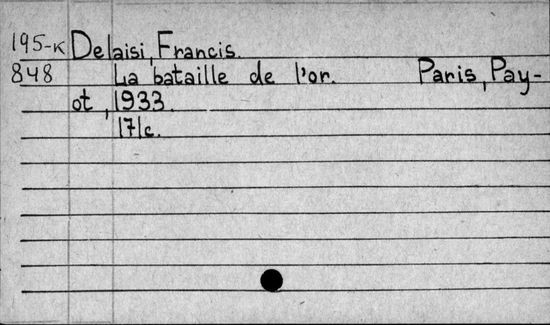 195-к Delaisi, Francis.
848 La bataille de l'or. Paris, Pay-
ot, 1933.
171c.